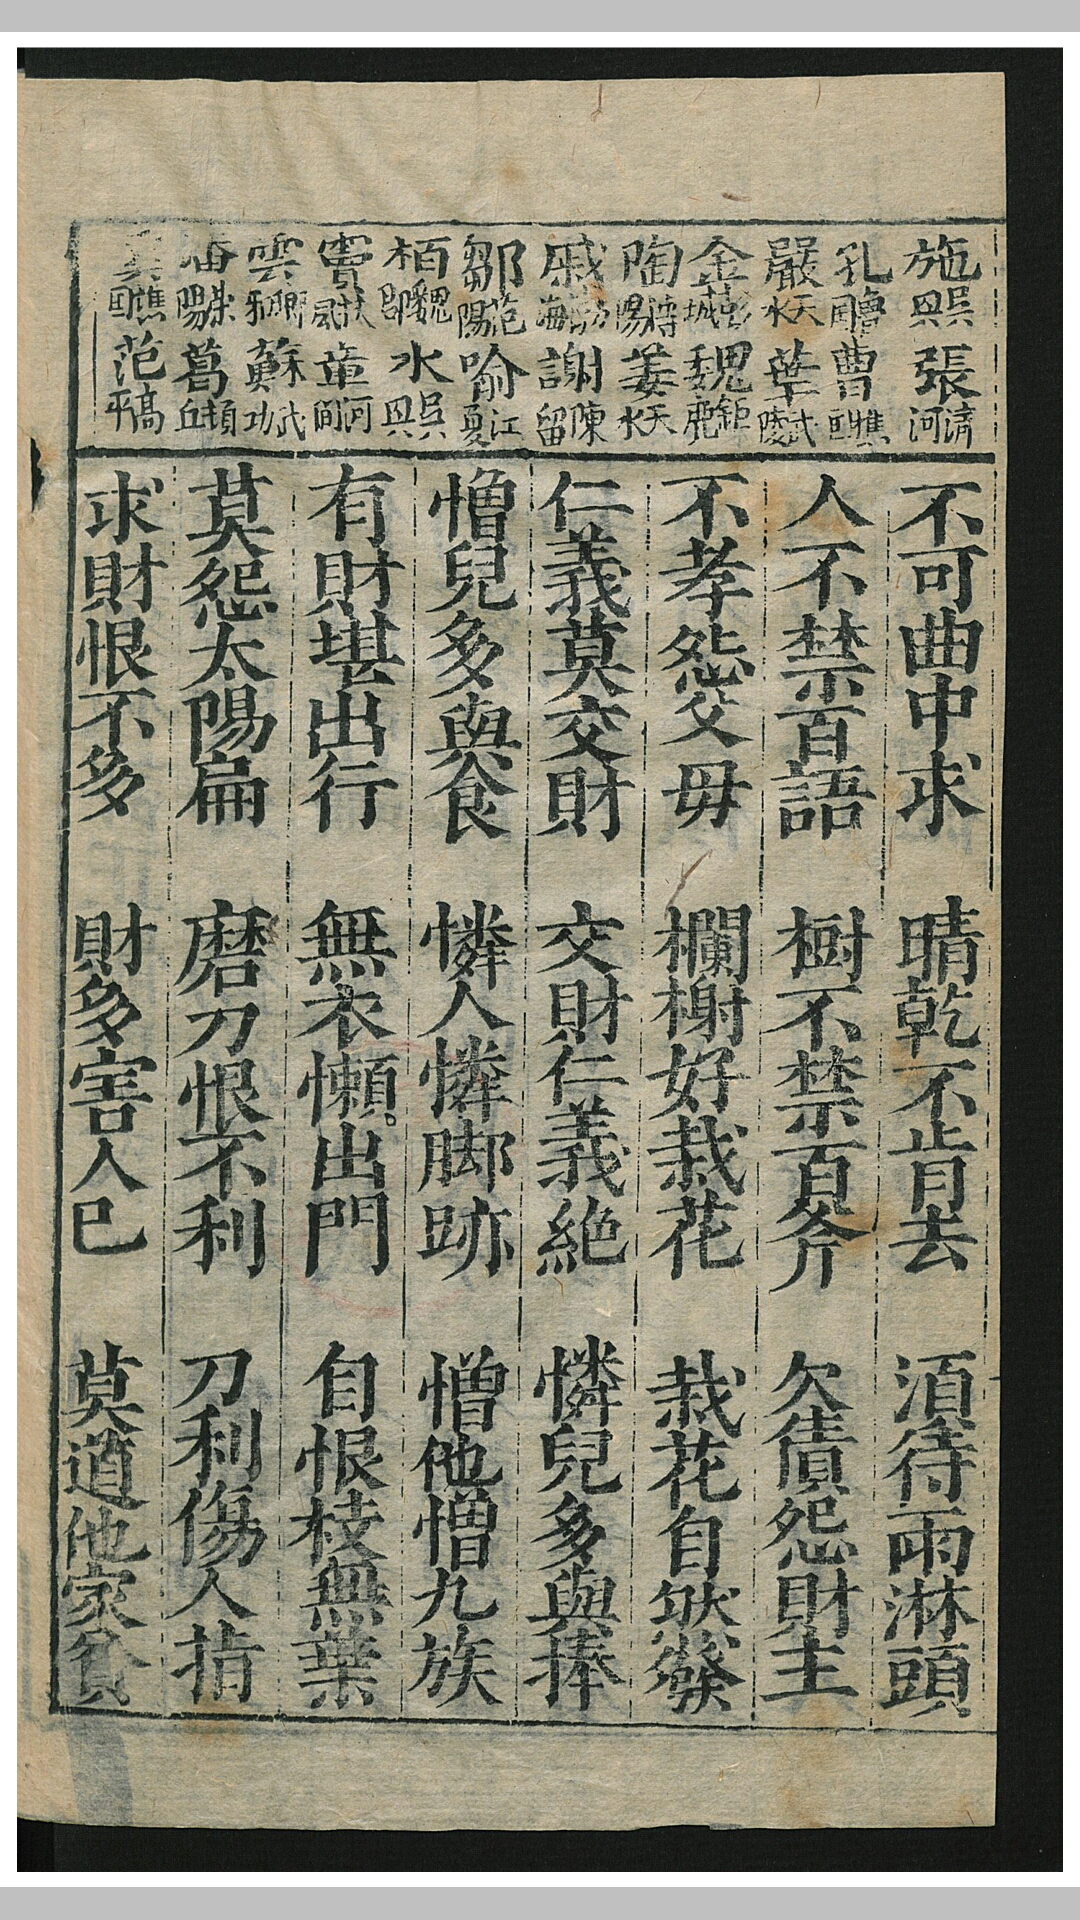 施吳興 張清河
孔魯國 曹譙國
嚴天水 葉武陵
金彭城 魏鉅鹿
陶 陽 姜天水
戚 海 謝陳留
鄒范陽 喻江夏
栢魏郡 水吳興
竇扶風 章河間
雲瑯琊 蘇武功
 陽 葛頓丘
 譙國 范高平
不可曲中求 晴乾不肯去 湏待雨淋頭
人不禁百語 樹不禁百斧 欠債怨財主
不孝怨父毋 欄榭好栽花 栽花自然發
仁義莫交財 交財仁義絶 憐兒多與捧
憎兒多與食 憐人憐脚跡 憎他憎九族
有財堪出行 無衣懶出門 自恨枝無葉
莫怨太陽扁 磨刀恨不利 刀利傷人指
求財恨不多 財多害人已 莫道他家貧